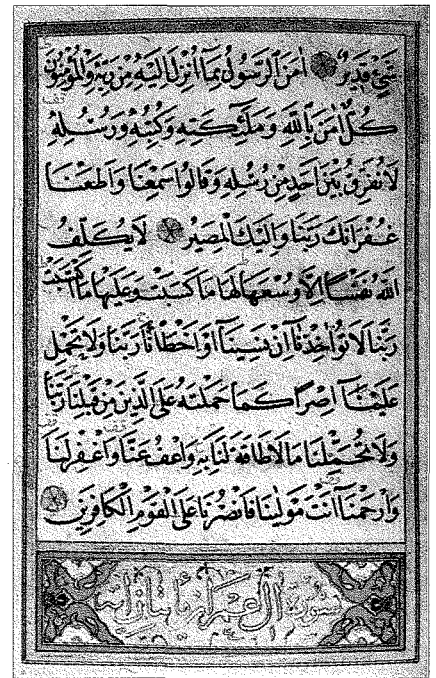 شَيْءٍ قَدِيرٌ اٰمَنَ الرَّسُولُ بِمَٓا اُنْزِلَ اِلَيْهِ مِنْ رَبِّهِ وَالْمُؤْمِنُونَ
كُلٌّ اٰمَنَ بِاللّٰهِ وَمَلٰٓئِكَتِهِ وَكُتُبِهِ وَرُسُلِهِ
لَا نُفَرِّقُ بَيْنَ اَحَدٍ مِنْ رُسُلِهِ وَقَالُوا سَمِعْنَا وَاَطَعْنَا
غُفْرَانَكَ رَبَّنَا وَاِلَيْكَ الْمَصِيرُ لَا يُكَلِّفُ
اللّٰهُ نَفْسًا اِلَّا وُسْعَهَا لَهَا مَا كَسَبَتْ وَعَلَيْهَا مَا اكْتَسَبَتْ
رَبَّنَا لَا تُؤَاخِذْنَٓا اِنْ نَسِينَٓا اَوْ اَخْطَاْنَا رَبَّنَا وَلَا تَحْمِلْ
عَلَيْنَٓا اِصْرًا كَمَا حَمَلْتَهُ عَلَى الَّذِينَ مِنْ قَبْلِنَا رَبَّنَا
وَلَا تُحَمِّلْنَا مَا لَا طَاقَةَ لَنَا بِهِ وَاعْفُ عَنَّا وَاغْفِرْ لَنَا
وَارْحَمْنَا اَنْتَ مَوْلٰينَا فَانْصُرْنَا عَلَى الْقَوْمِ الْكَافِرِينَ
سورة ال عمران مائتا اية